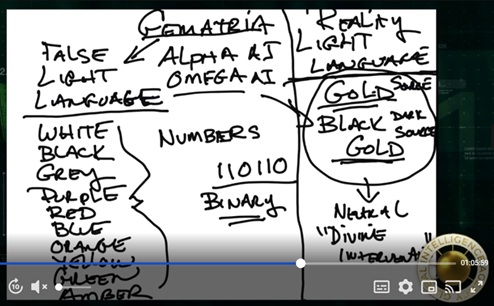 GEMATRIA
FALSE
LIGHT
LANGUAGE
ALPHA AI
OMEGA AI
REALITY
LIGHT
LANGUAGE
WHITE
BLACK
GREY
PURPLE
RED
BLUE
ORANGE
YELLOW
GREEN
AMBER
NUMBERS
110110
BINARY
GOLD SOURCE
BLACK DARK
GOLD SOURCE
NEUTRAL
"DIVINE
INTERVENTION"
01:05:59
10